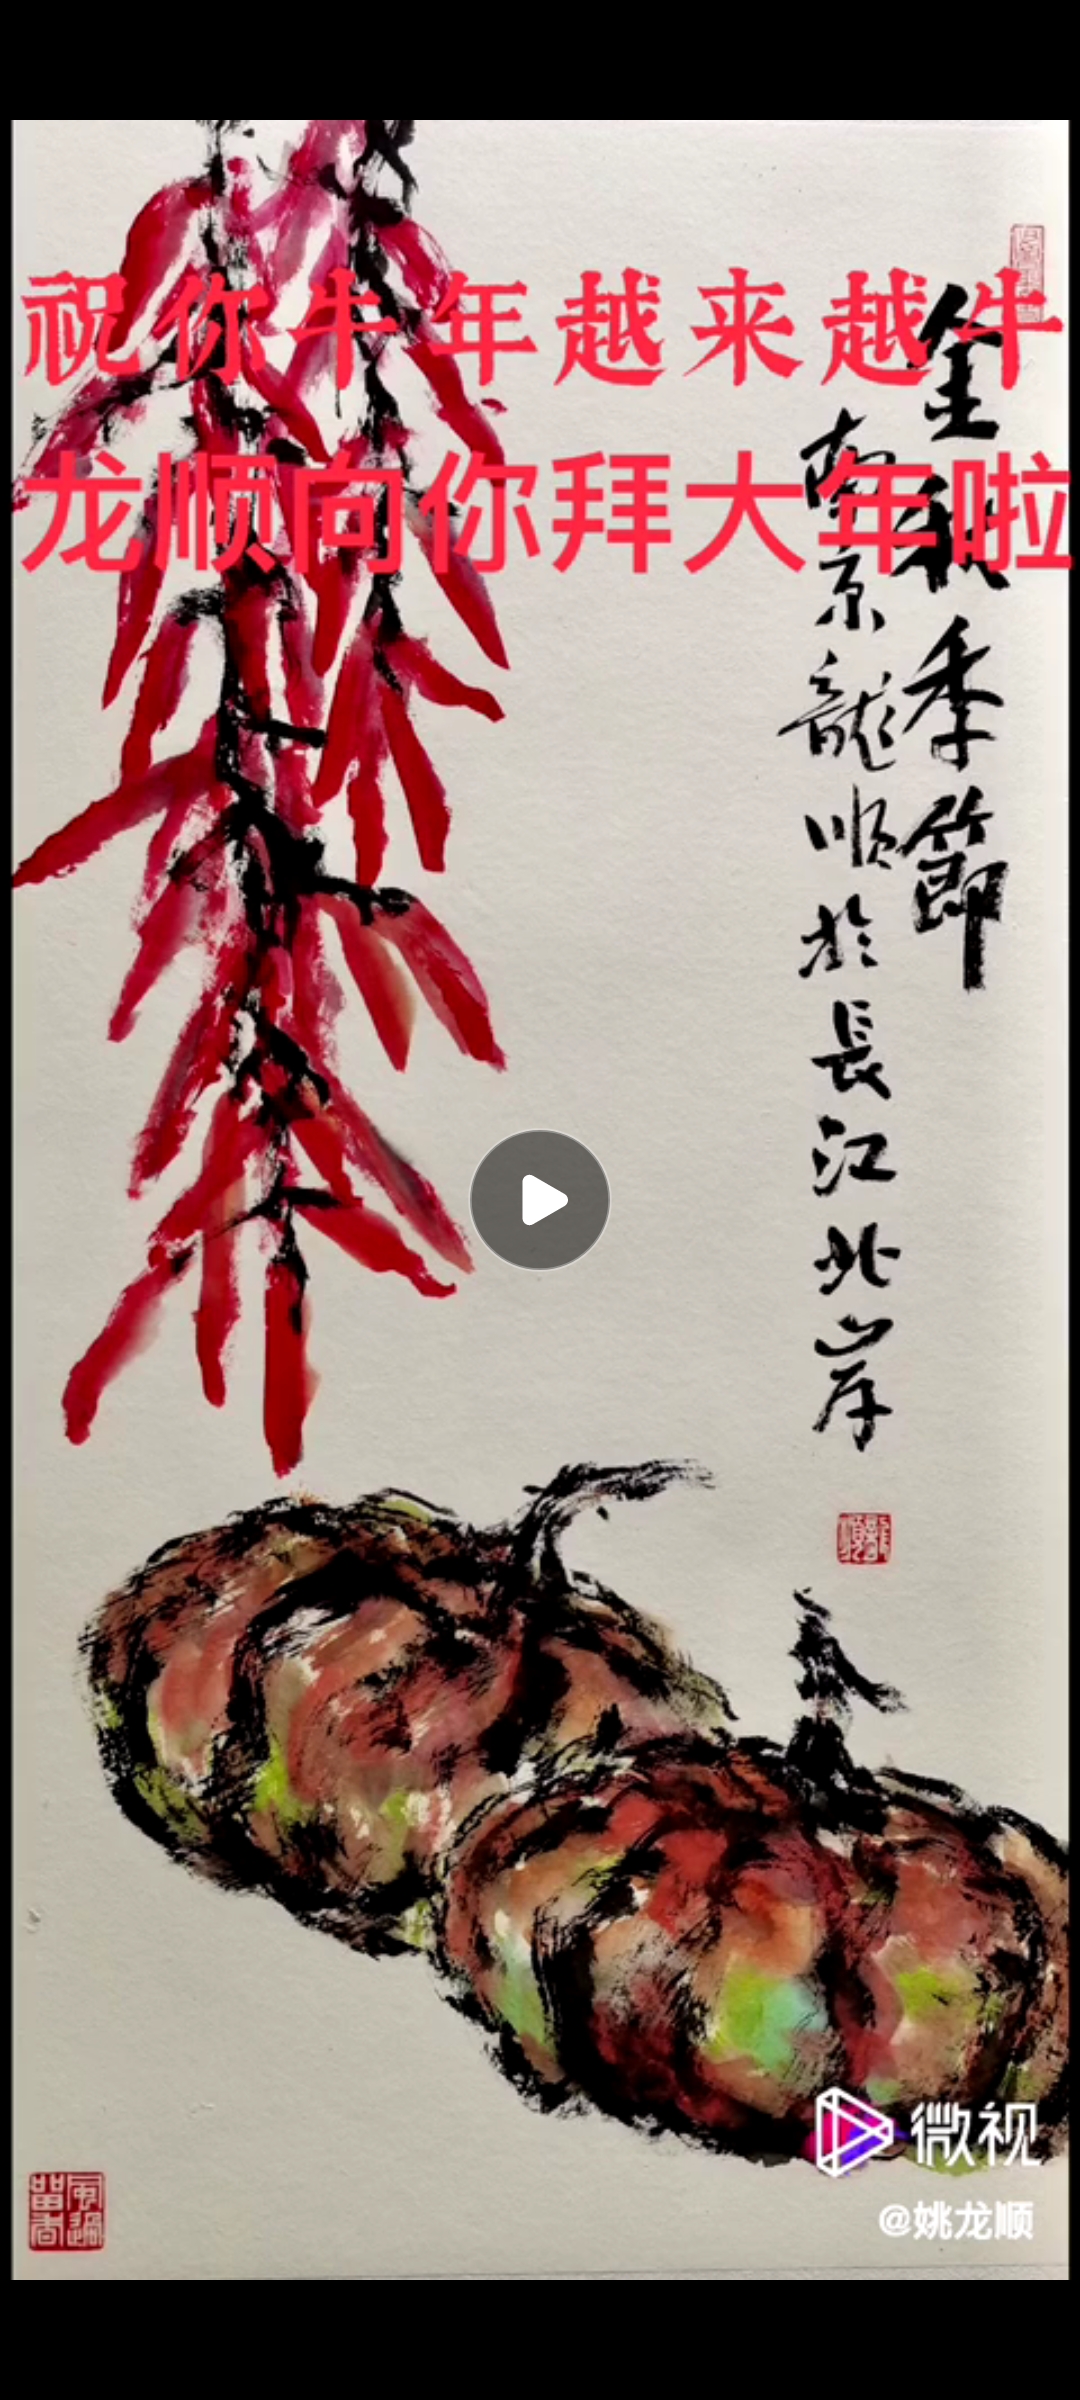 祝你牛年越来越牛
龙顺向你拜大年啦
金秋季節
南京龍順於長江北岸
微视
@姚龙顺